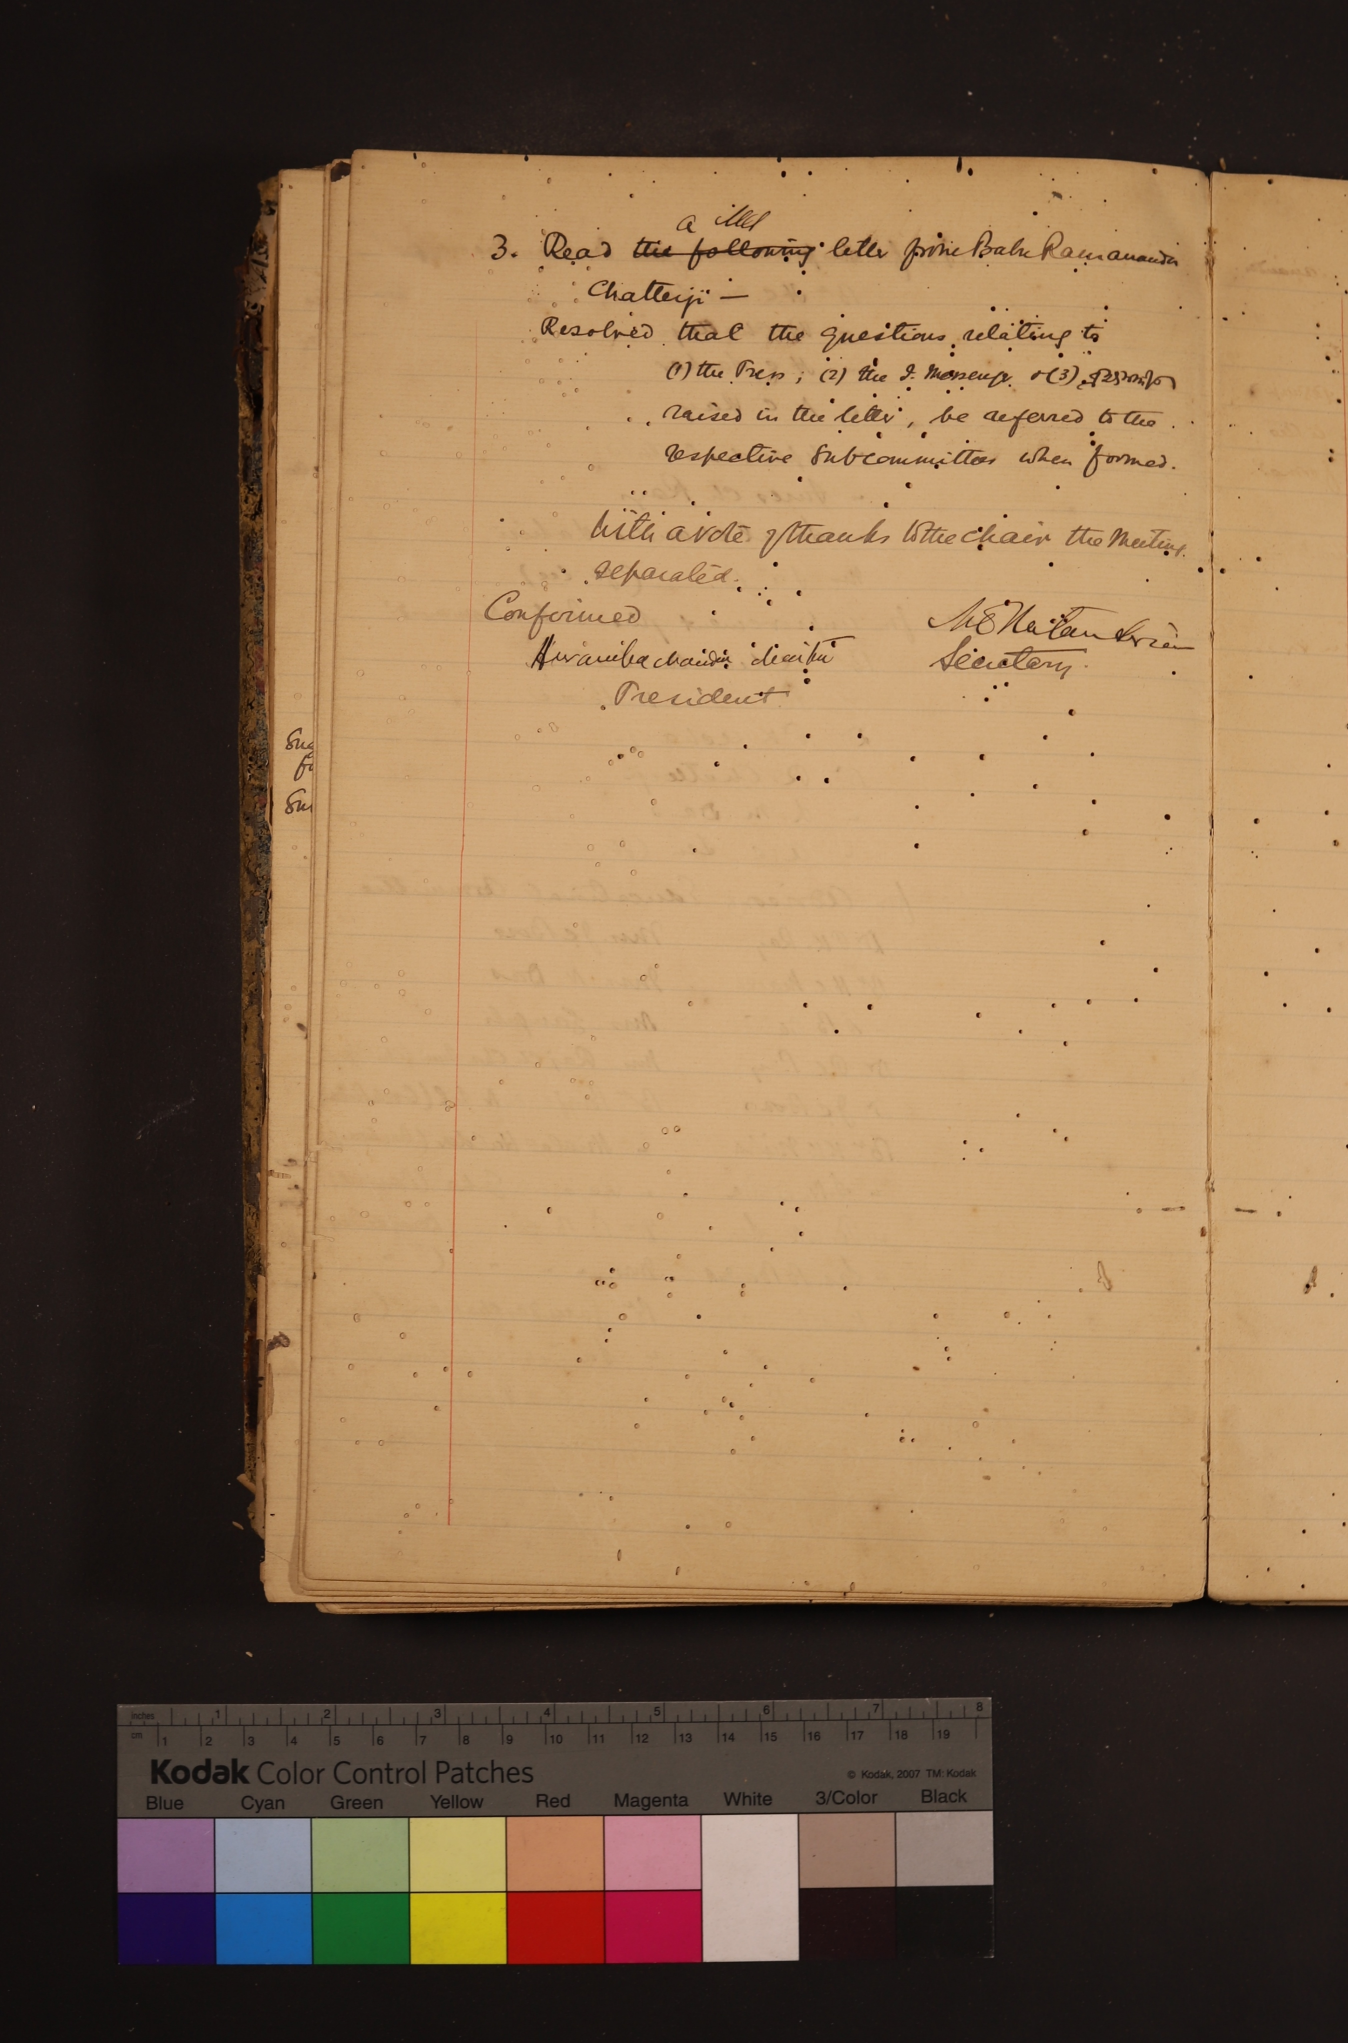 a
3. Read the following letter from Babu Ramananda
Chatterji —
Resolved that the questions relating to
(1) the Press; (2) the I. Messenger & (3)
raised in the letter, be referred to the
respective Subcommittees when formed.
With a vote of thanks to the chair the Meeting
separated.
Confirmed
Heramba Chandra Maitra
President
Secretary.
inches 1 2 3 4 5 6 7 8
cm 1 2 3 4 5 6 7 8 9 10 11 12 13 14 15 16 17 18 19
Kodak Color Control Patches
© Kodak, 2007 TM: Kodak
Blue Cyan Green Yellow Red Magenta White 3/Color Black